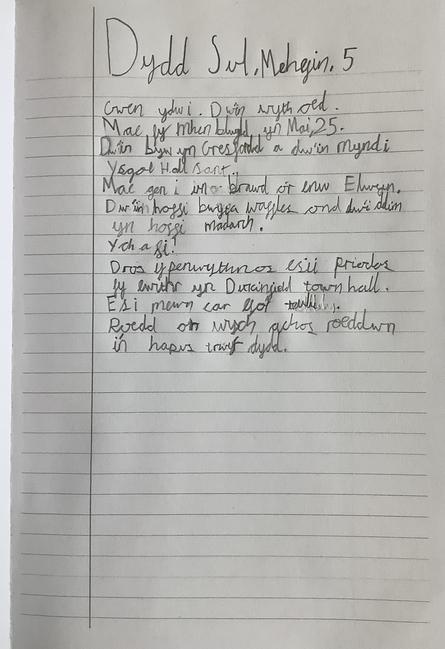 Dydd Sul, Mehegin. 5
Owen ydwi. Dwin wyth oed.
Mae fy mhen blwydd, yn Mai, 25.
Dwin byw yn Gresfordd a dwin myndi
Ysgol Hall Sant.
Mae gen i un brawd or enw Elwyn.
Dwiin hoffi bwyta waffles ond dwi ddim
yn hoffi madarch.
Ych a fi!
Dros ypenwythnos esii priodas
fy ewithr yn Duckinfield town hall.
Esi mewn car gyf
Roedd on wych achos roeddwn
in hapus trwyr dydd.